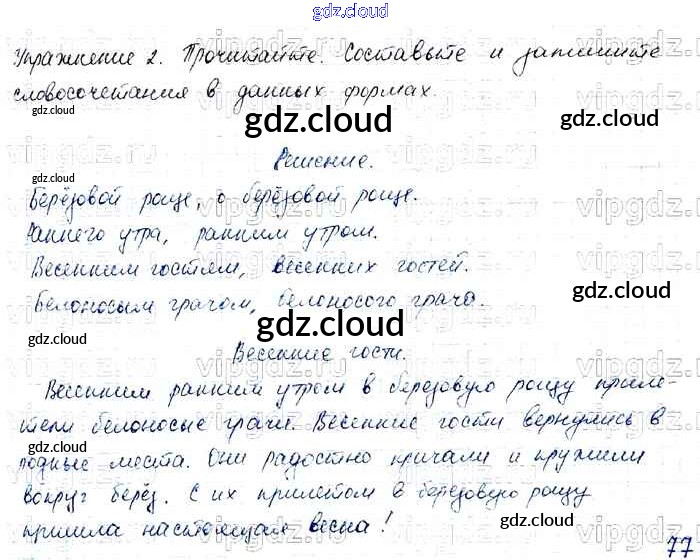 gdz.cloud
Упражнение 2. Прочитайте. Составьте и запишите
словосочетания в данных формах.
gdz.cloud
gdz.cloud
gdz.cloud
Решение.
Берёзовой роще, о берёзовой роще.
gdz.cloud
Раннего утра, ранним утром.
Весенним гостям, весенних гостей.
gdz.cloud
Белоносым грачом, белоносого грача.
gdz.cloud
gdz.cloud
Весенние гости.
Весенним ранним утром в березовую рощу приле-
тели белоносые грачи. Весенние гости вернулись в
gdz.cloud
родные места. Они радостно кричали и кружили
gdz.cloud
вокруг берёз. С их прилетом в березовую рощу
gdz.cloud
пришла настоящая весна!
77